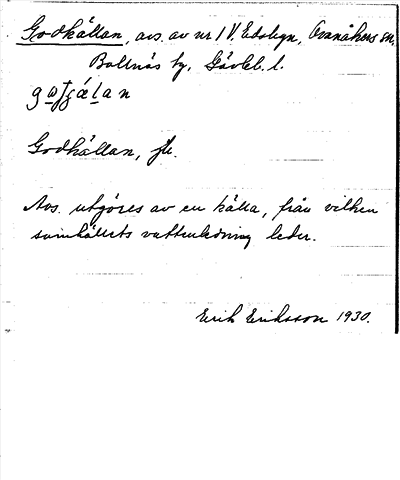 Godkällan, avs. av nr 1 V. Edsbyn, Ovanåkers sn,
Bollnäs tg, Gävleb. l.
Godkällan, fl.
Avs. utgöres av en källa, från vilken
samhällets vattenledning leder.
Erik Eriksson 1930.